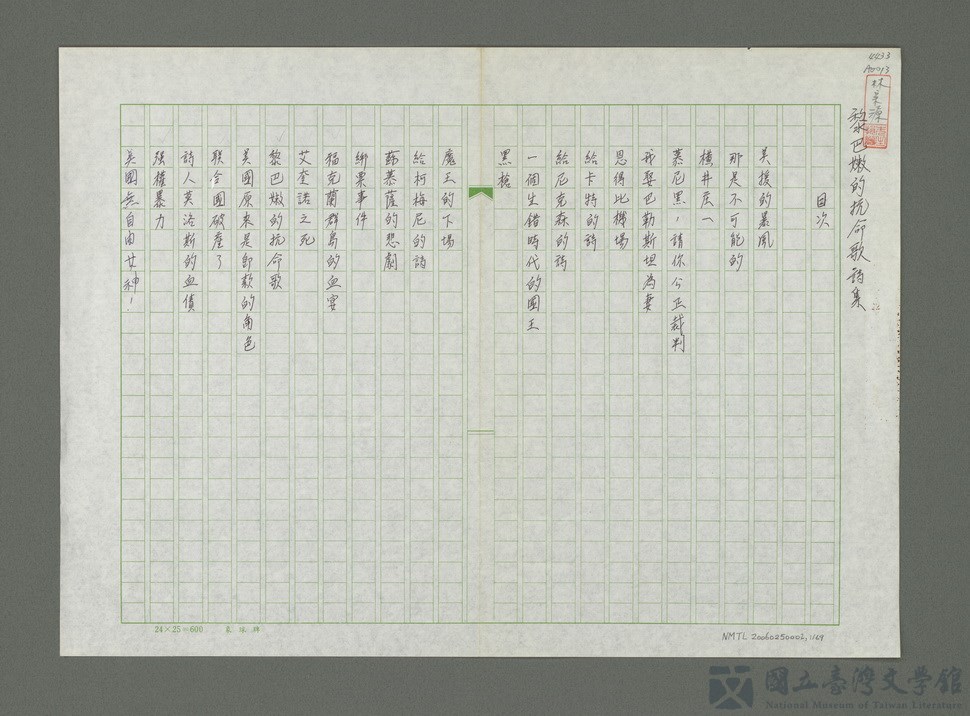 4433
林美漳
黎巴嫩的抗命歌詩集
目次
美援的暴風
那是不可能的
橫井庄一
慕尼黑，請你公正裁判
我娶巴勒斯坦為妻
恩得比機場
給卡特的詩
給尼克森的詩
一個生錯時代的國王
黑槍
魔王的下場
給柯梅尼的詩
蘇慕薩的悲劇
綁票事件
福克蘭群島的血宴
艾奎諾之死
黎巴嫩的抗命歌
美國原來是卸款的角色
聯合國破產了
詩人莫洛斯的血債
強權暴力
美國無自由女神！
24×25=600
NMTL 20060250002,1169
國立臺灣文學館
National Museum of Taiwan Literature